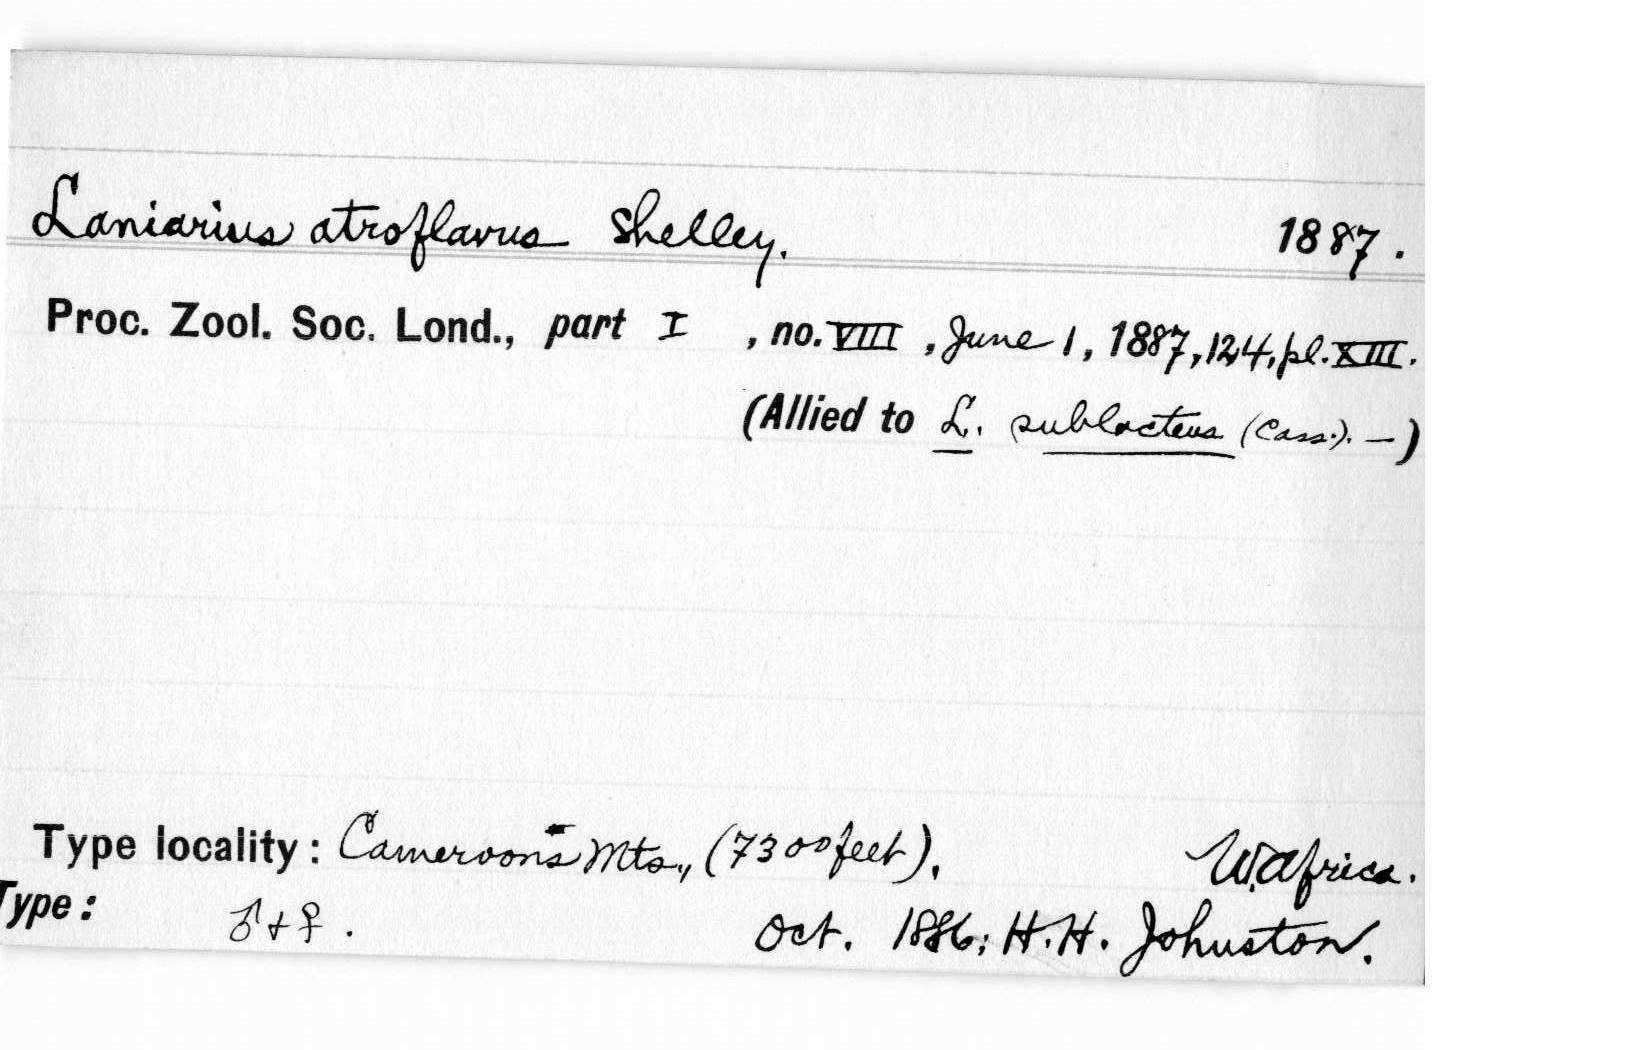 Laniarius atroflavus Shelley. 1887.
Proc. Zool. Soc. Lond., part I , no. VIII , June 1, 1887, 124, pl. XIII.
(Allied to L. sublacteus (Cass.). —)
Type locality: Cameroons Mts., (7300 feet). W. Africa.
Type: ♂ + ♀. Oct. 1886; H. H. Johnston.